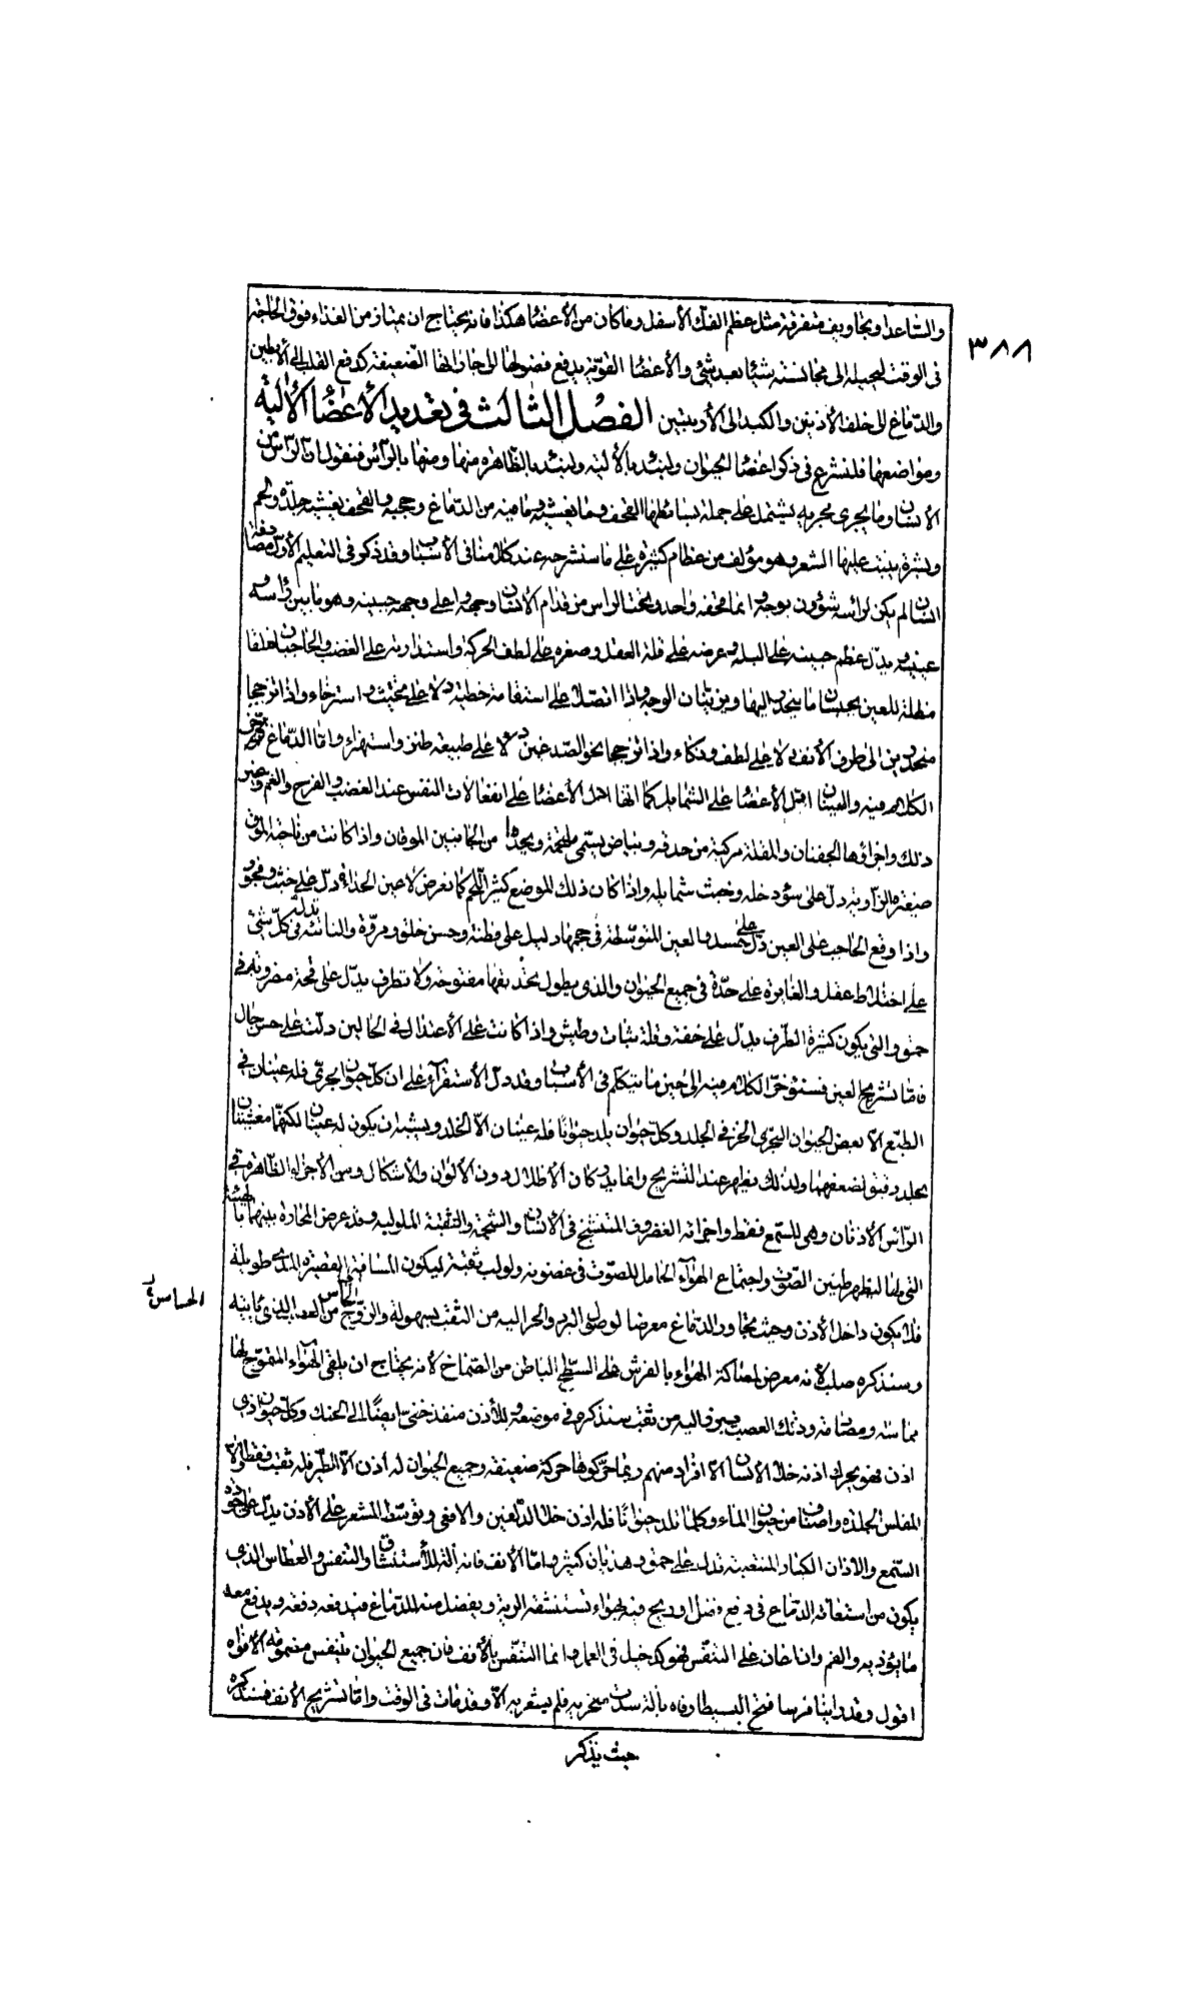 ٣٨٨
والساعد او تجاويف متفرقة مثل عظم الفك الأسفل وما كان من الأعضاء هكذا فانه يحتاج ان يمتاز من الغذاء فوق الحاجة
فى الوقت ليحيله الى مجانسته شيئا بعد شئ والأعضاء القوية يدفع فضولها الى جاراتها الضعيفة كدفع القلب الى الأبطين
والدماغ الى خلف الأذنين والكبد الى الأربيتين الفصل الثالث فى تعديد الأعضاء الألية
ومواضعها فلنشرع فى ذكر اعضاء الحيوان ولنبتدء بالألية ولنبتدء بالظاهرة منها ومنها بالرأس فنقول ان الرأس من
الأنسان وما يجرى مجريه يشتمل على جملة بسائطها القحف وما يغشيه وما فيه من الدماغ وحجبه والقحف يغشيه جلدة ولحم
وبشرة ينبت عليها الشعر وهو مؤلف من عظام كثيرة على ما سنشرحه عند كلامنا فى الأنسان وقد ذكر فى التعليم الأول مصادفة
انسان لم يكن لرأسه شؤون بوجه وانما قحفه واحد وتحت الراس من قدام الأنسان وجهه واعلى وجهه جبينه وهو ما بين رأسه و
عينيه ويدل عظم جبينه على البله وعرضه على قلة العقل وصغره على لطف الحركة واستدارته على الغضب والحاجبان خلقا
مظلة للعين يحبسان ما ينحدر اليها ويزينان الوجه واذا اتصلا على استقامة خطية دلا على تخنيث واسترخاء واذا تزججا
منحدرين الى طرف الأنف دلا على لطف وذكاء واذا تزججا نحو الصدغين دلا على طبيعة طنز واستهزاء واما الدماغ فيؤخر
الكلام فيه والعينان ادل الأعضاء على الشمايل كما انها ادل الأعضاء على انفعالات النفس عند الغضب والفرح والغم وغير
ذلك واجزاؤها الجفنان والمقلة مركبة من حدقة وبياض يسمى ملتحمة ويحدها من الجانبين الموقان واذا كانت من ناحية الموق
صغيرة الزاوية دل على سؤ دخلة وخبث شمايل واذا كان ذلك الموضع كثير اللحم كما يعرض لاعين الحداء دل على خبث وفجور
واذا وقع الحاجب على العين دل على حسد والعين المتوسطة فى حجمها دليل على فطنة وحسن خلق ومروة والناتئة تدل فى كل شئ
على اختلاط عقل والغايرة على حدة فى جميع الحيوان والذى يطول تحديقها مفتوحة ولا تطرف يدل على قحة مضرة
حمق والتى يكون كثيرة الطرف يدل على خفة وقلة ثبات وطيش واذا كانت على الأعتدال فى الحالين دلت على حسن حال
فاما تشريح العين فسنؤخر الكلام فيه الى حين ما نتكلم فى الأنسان وقد دل الأستقراء على ان كل حيوان بجرى فله عينان فى
الطبع الا بعض الحيوان البحرى الخزفى الجلد وكل حيوان يلد حيوانا فله عينان الا الخلد ويشبه ان يكون له عينان لكنهما مغشيتان
بجلد دقيق لضعفهما ولذلك يظهر عند التشريح وانما يدركان الأظلال دون الألوان والأشكال ومن الأجزاء الظاهرة فى
الرأس الأذنان وهى للسمع فقط واجزائه الغضروف المتشنج فى الأنسان والشحمة والثقبة الملولبة وقد عرض المحارة بينهما بالهيئة
التى لها ليظهر طنين الصوت واجتماع الهواء الحامل للصوت فى غضونه ولولب ثقبته ليكون المسافة القصيرة المدى طويلة
فلا يكون داخل الأذن وحيث تجاور الدماغ معرضا لوصول البرد والحر اليه من الثقب بسهولة والزوج الحاس من العصب الذى يأتيه
الحساس
وسنذكره صلب لأنه معرض لمصاكة الهواء بالفرش على السطح الباطن من الصماخ لأنه يحتاج ان يلقى الهواء المتموج لها
مماسة ومصادفة وذلك العصب يبرز اليه من ثقب سنذكره فى موضعه وللأذن منفذ خفى ايضا الى الحنك وكل حيوان ذى
اذن فهو يحرك اذنه خلا الأنسان الا افراد منهم ربما حركوها حركة ضعيفة وجميع الحيوان له اذن الا الطير فله ثقب فقط والا
المفلس الجلدة واصناف من حيوان الماء وكلما يلد حيوانا فله اذن خلا الدلفين والافعى وتوسط الشعر على الأذن يدل على جودة
السمع والاذان الكبار المنتصبة تدل على حمق وهذيان كثير واما الأنف فانه آلة للأستنشاق والتنفس والعطاس الذى
يكون من استعانة الدماغ فى دفع فضل او ريح فيه بهواء تستنشقه الرية ويفضل منه للدماغ فيدفعه دفعة ويدفع معه
ما يؤذيه والفم وان اعان على التنفس فهو كدخيل فى العمل وانما التنفس بالأنف فان جميع الحيوان يتنفس مضمومة الأفواه
اقول وقد راينا فرسا فاه بآلة سدت منخريه فلم يشعر به الا وقد مات فى الوقت واما تشريح الأنف فسنذكره
حيث يذكر